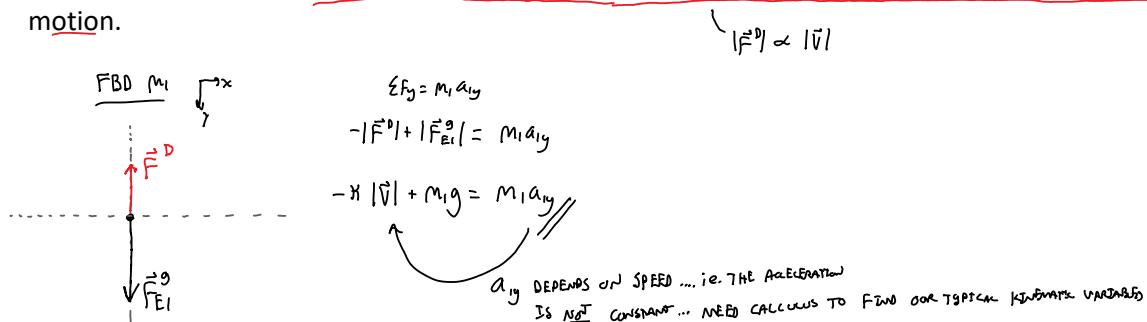 motion.
|F⃗ᴰ| ∝ |V⃗|
FBD M₁
x
y
ΣFy = m₁a₁y
-|F⃗ᴰ| + |F⃗ᵍE1| = m₁a₁y
F⃗ᴰ
-K|V⃗| + m₁g = m₁a₁y
F⃗ᵍE1
a₁y DEPENDS ON SPEED .... i.e. THE ACCELERATION
IS NOT CONSTANT... NEED CALCULUS TO FIND OUR TYPICAL KINEMATIC VARIABLES